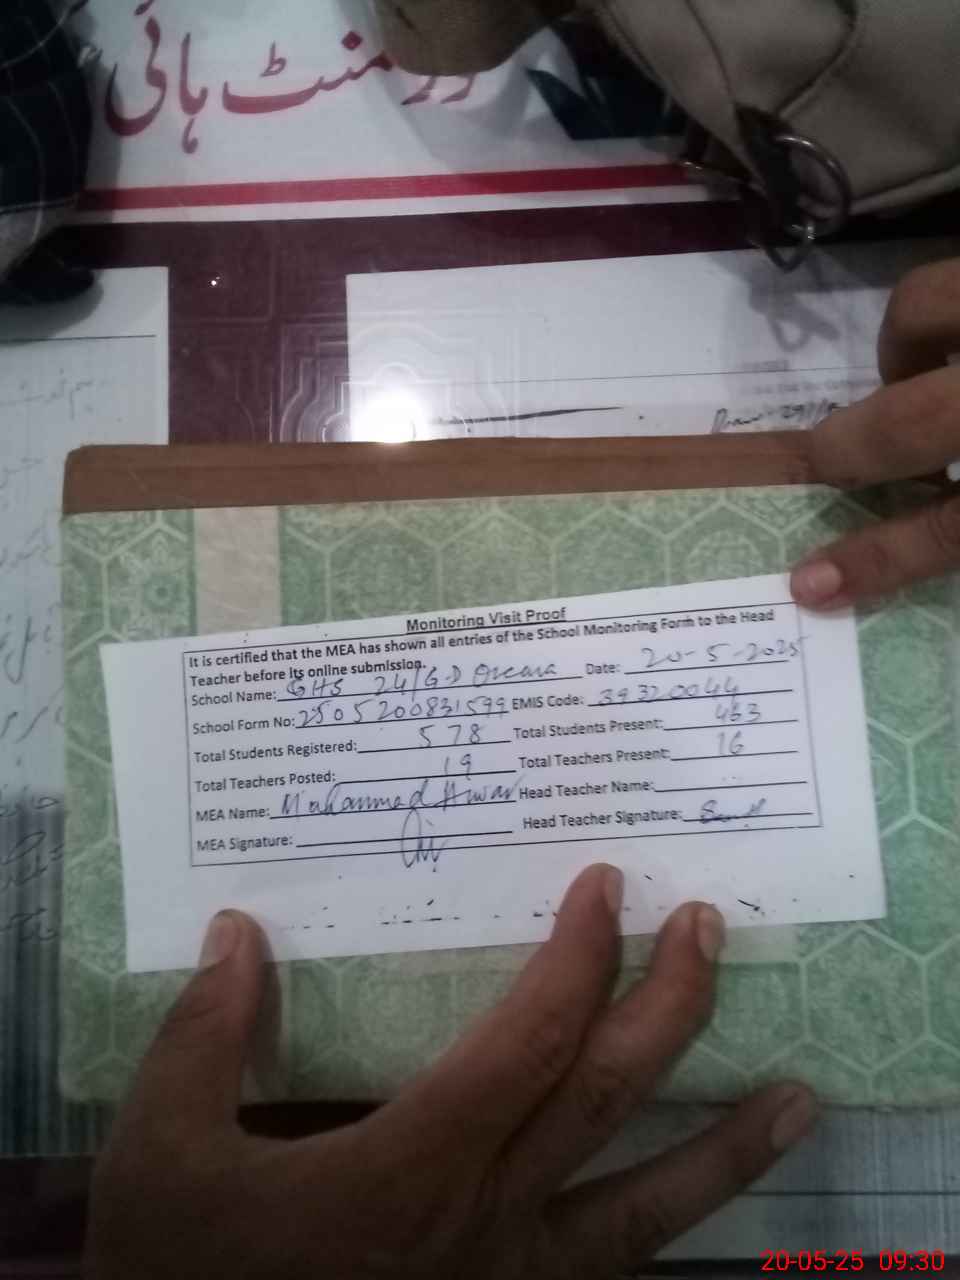 گورنمنٹ ہائی
Monitoring Visit Proof
It is certified that the MEA has shown all entries of the School Monitoring Form to the Head
Teacher before its online submission.
School Name: GHS 24/G-D Okara Date: 20-5-2025
School Form No: 2505200831599 EMIS Code: 39320044
Total Students Registered: 578 Total Students Present: 463
Total Teachers Posted: 19 Total Teachers Present: 16
MEA Name: Muhammad Anwar Head Teacher Name:
MEA Signature: Head Teacher Signature:
20-05-25 09:30